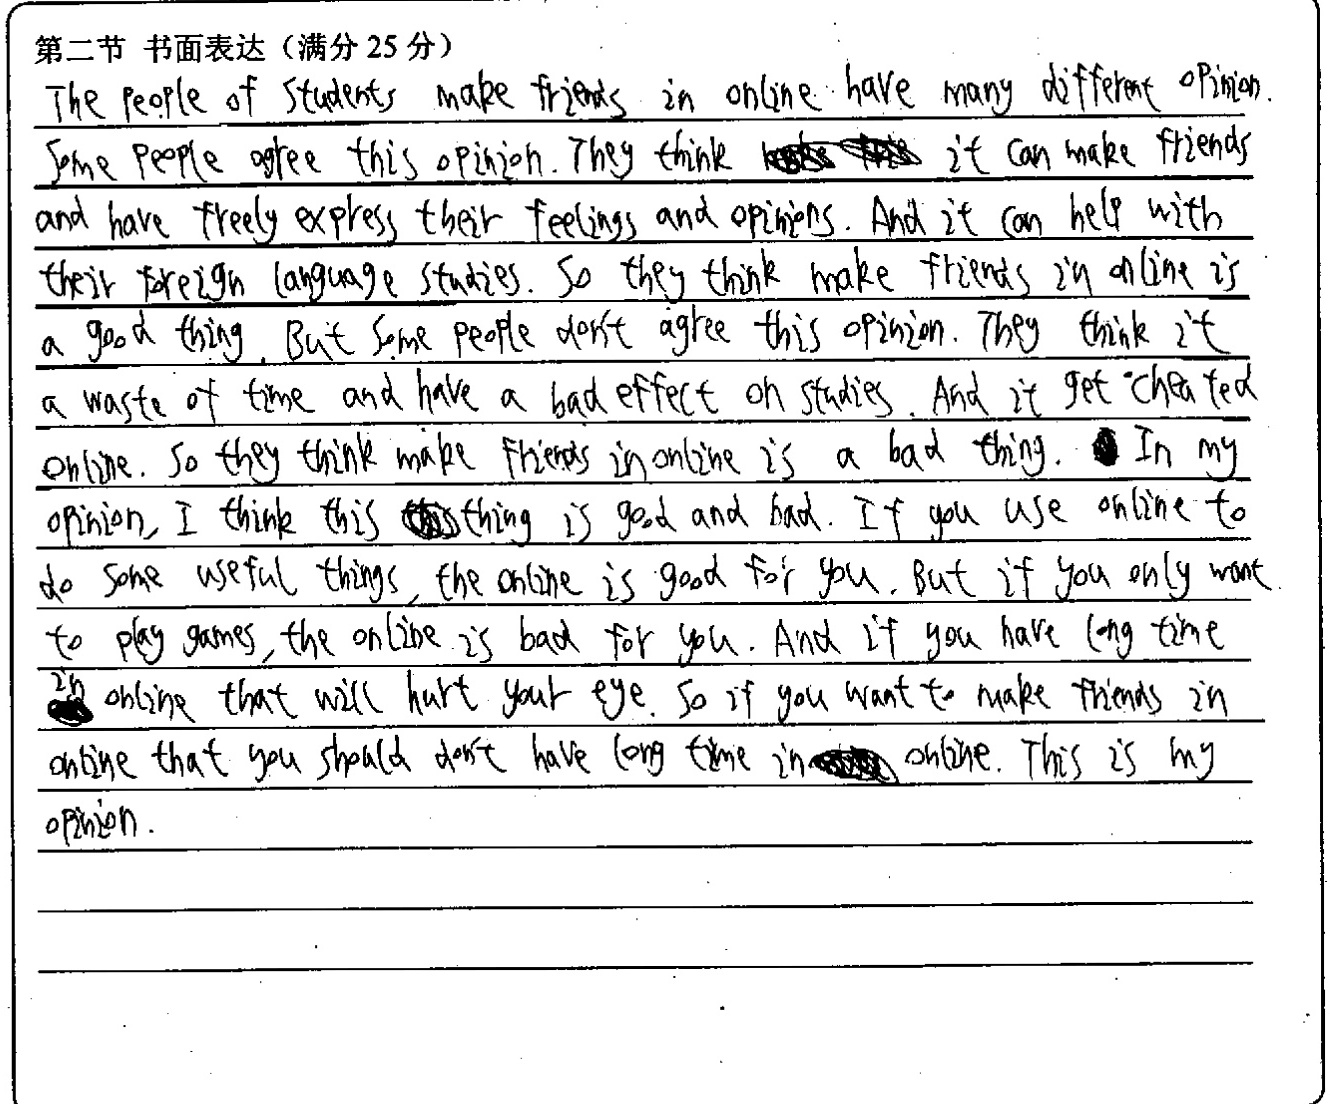 第二节 书面表达（满分 25 分）
The people of students make friends in online have many different opinion.
Some people agree this opinion. They think it can make friends
and have freely express their feelings and opinions. And it can help with
their foreign language studies. So they think make friends in online is
a good thing. But some people don't agree this opinion. They think it
a waste of time and have a bad effect on studies. And it get cheated
online. So they think make friends in online is a bad thing. In my
opinion, I think this thing is good and bad. If you use online to
do some useful things, the online is good for you. But if you only want
to play games, the online is bad for you. And if you have long time
in online that will hurt your eye. So if you want to make friends in
online that you should don't have long time in online. This is my
opinion.